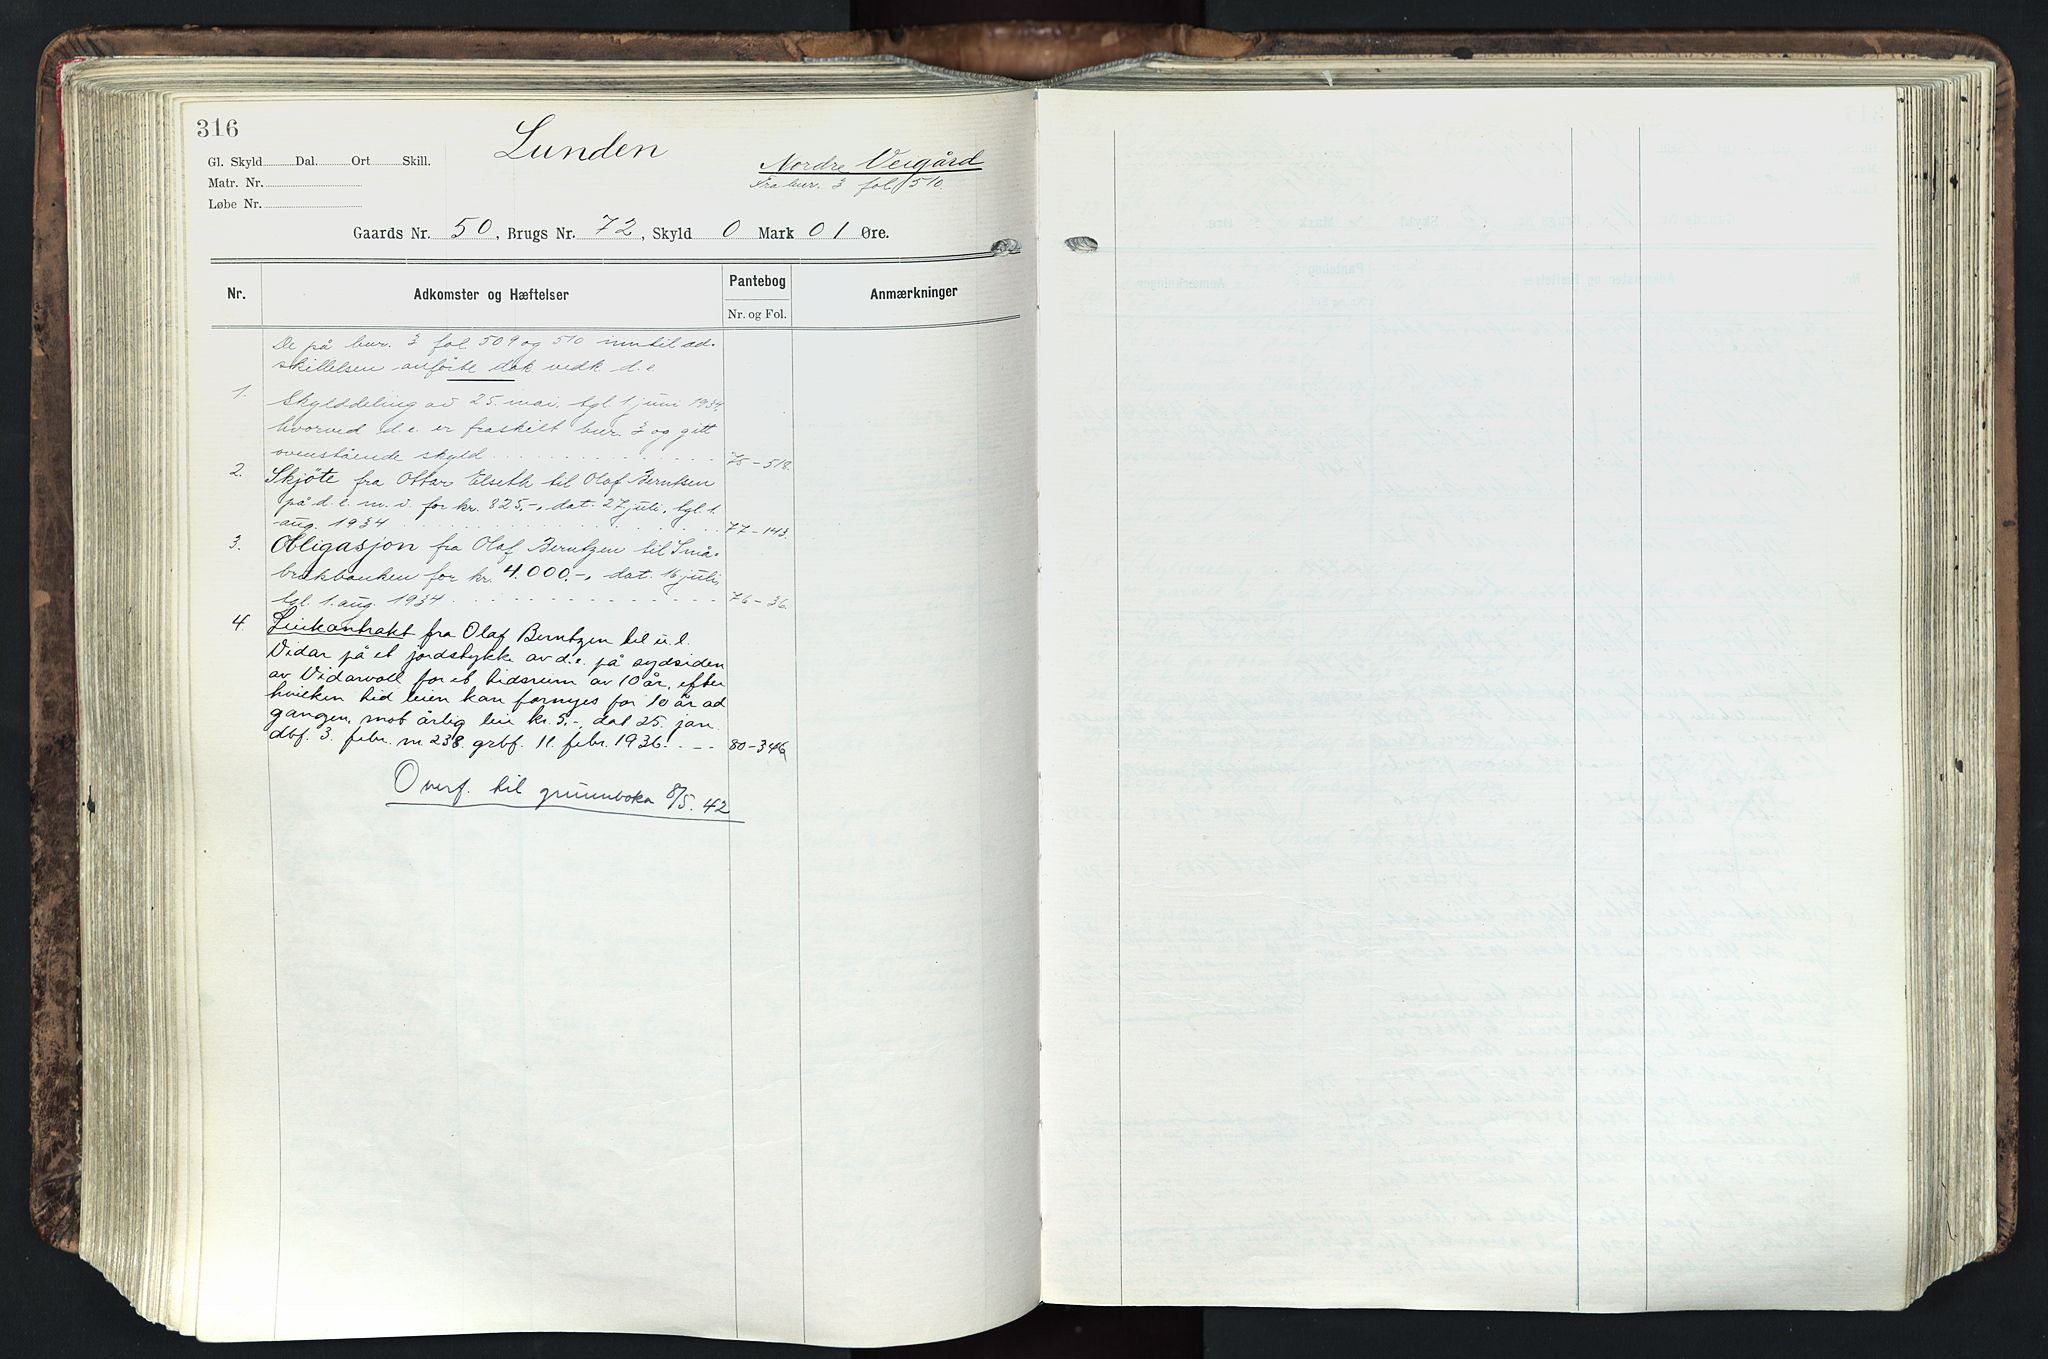 316
Lunden
Gl. Skyld Dal. Ort Skill.
Nordre Veigård
Matr. Nr.
Fra bnr. 3 fol. 510.
Løbe Nr.
Gaards Nr. 50, Brugs Nr. 72, Skyld 0 Mark 01 Øre.
Nr. Adkomster og Hæftelser Pantebog Anmærkninger
Nr. og Fol.
De på bnr. 3 fol. 509 og 510 inntil ad-
skillelsen anførte dok vedk d.e.
1. Skylddeling av 25. mai, tgl. 1 juni 1934,
hvorved d.e. er fraskilt bnr. 3 og gitt
ovenstående skyld 75-518.
2. Skjöte fra Ottar Elseth til Olaf Berntzen
på d.e. m.v. for kr. 825,-, dat. 27 juli, tgl. 1.
aug. 1934 77-143.
3. Obligasjon fra Olaf Berntzen til Små-
brukbanken for kr. 4.000.-, dat. 16 juli,
tgl. 1. aug. 1934 76-36.
4. Leiekontrakt fra Olaf Berntzen til u.l.
Vidar på et jordstykke av d.e. på sydsiden
av Vidarvoll for et tidsrum av 10 år, efter
hvilken tid leien kan fornyes for 10 år ad
gangen, mot årlig leie kr. 5,-, dat 25. jan.
dbf. 3. febr. nr. 238. grbf. 11. febr. 1936. 80-346
Overf. til grunnboka 8/5. 42